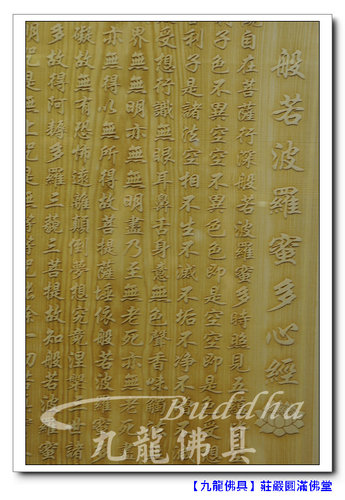 般若波羅蜜多心經
觀自在菩薩行深般若波羅蜜多時照見五
子色不異空空不異色色即是空空即是
舍利子是諸法空相不生不滅不垢不淨不
受想行識無眼耳鼻舌身意無色聲香味觸
界無無明亦無無明盡乃至無老死亦無老死
亦無得以無所得故菩提薩埵依般若波羅蜜
礙故無有恐怖遠離顛倒夢想究竟涅槃三世諸
多故得阿耨多羅三藐三菩提故知般若波羅蜜
明咒是無上咒是無等等咒能除一切苦
Buddha
九龍佛具
【九龍佛具】莊嚴圓滿佛堂